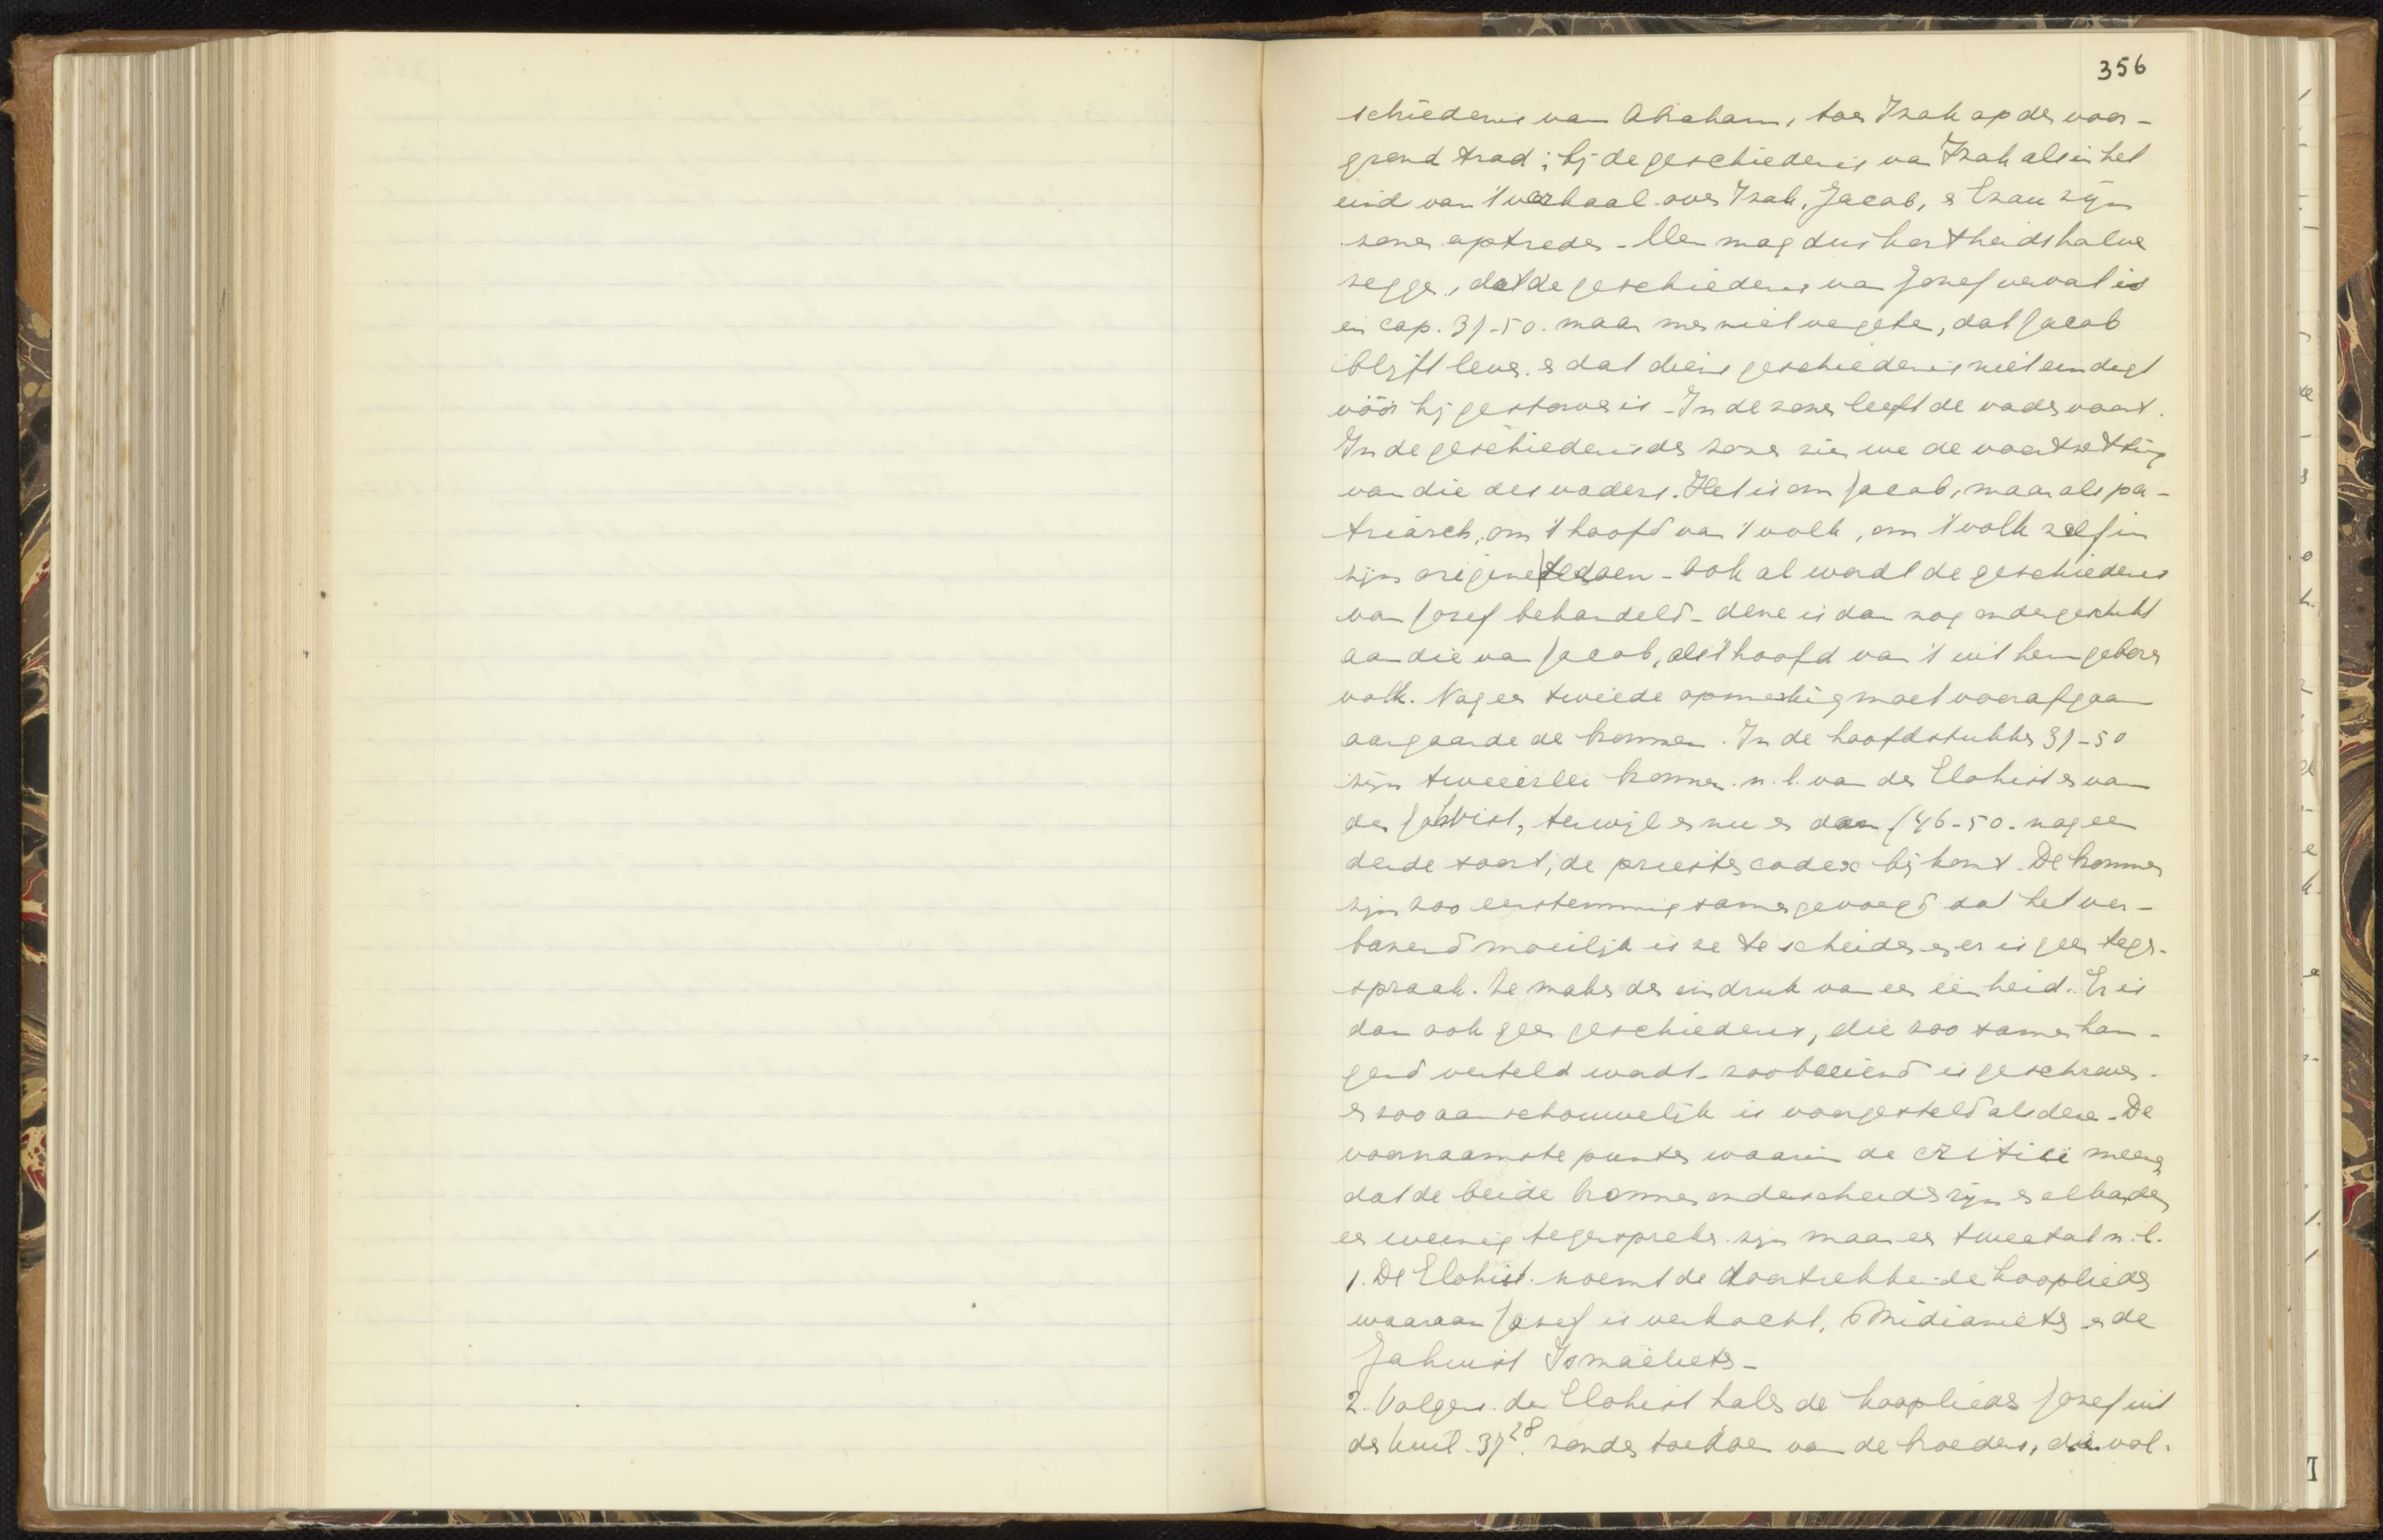 356
schiedenis van Abraham, toen Izak op den voor-
grond trad; bij de geschiedenis van Izak als in het
eind van 't verhaal over Izak, Jacob, en Ezau zijn
zonen optreden - Men mag dus kortheidshalve
zeggen, dat de geschiedenis van Jozef vervat is
in cap. 37-50. maar men niet vergeten, dat Jacob
blijft leven. en dat diens geschiedenis niet eindigt
vóór hij gestorven is - In de zonen leeft de vader voort.
In de geschiedenis der zonen zien we de voortzetting
van die des vaders. Het is om Jacob, maar als pa-
triarch, om 't hoofd van 't volk, om 't volk zelf in
zijn origine te doen - Ook al wordt de geschiedenis
van Jozef behandeld - deze is dan nog ondergeschikt
aan die van Jacob, als 't hoofd van 't uit hem geboren
volk. Nog een tweede opmerking moet voorafgaan
aangaande de bronnen. In de hoofdstukken 37-50
zijn tweeërlei bronnen. n.l. van den Elohist en van
den Jahvist, terwijl er nu en dan (46-50. nog een
derde soort, de priestercodex bij komt. De bronnen
zijn zoo eenstemmig samengevoegd dat het ver-
bazend moeilijk is ze te scheiden en er is geen tegen-
spraak. Ze maken den indruk van een eenheid. Er is
dan ook geen geschiedenis, die zoo samenhan-
gend verteld wordt - zoo boeiend is geschreven.
en zoo aanschouwelijk is voorgesteld als deze. De
voornaamste punten waarin de critici meenen
dat de beide bronnen onderscheiden zijn en elkander
een weinig tegenspreken zijn maar een tweetal n.l.
1. De Elohist. noemt de doortrekkende kooplieden
waaraan Jozef is verkocht, Midianieten en de
Jahwist Ismaëlieten -
2. Volgens den Elohist halen de kooplieden Jozef uit
den kuil 37²⁸. zonder toedoen van de broeders, die vol-